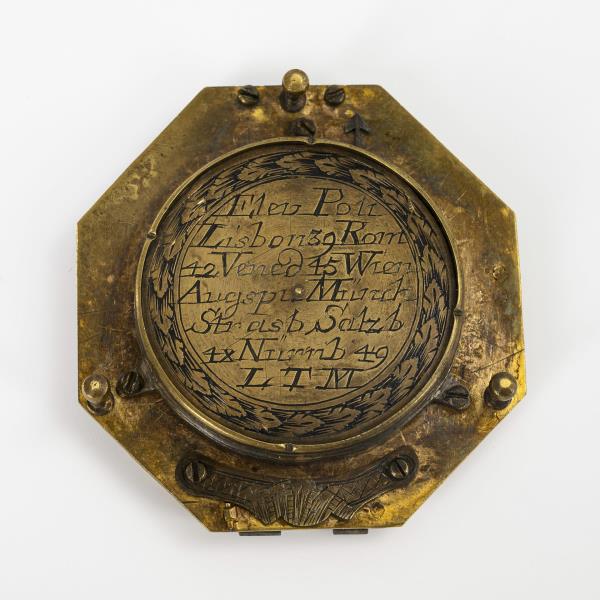 Elev Poli
Lisbon 39 Rom
42 Vened 45 Wien
Augspu Münch
Strasb Salzb
48 Nürnb 49
L T M